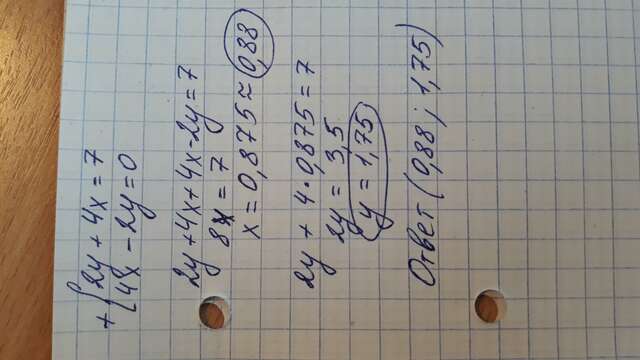 + { 2y + 4x = 7
4x - 2y = 0
2y + 4x + 4x - 2y = 7
8x = 7
x = 0,875 ≈ 0,88
2y + 4 · 0,875 = 7
2y = 3,5
y = 1,75
Ответ (0,88 ; 1,75)